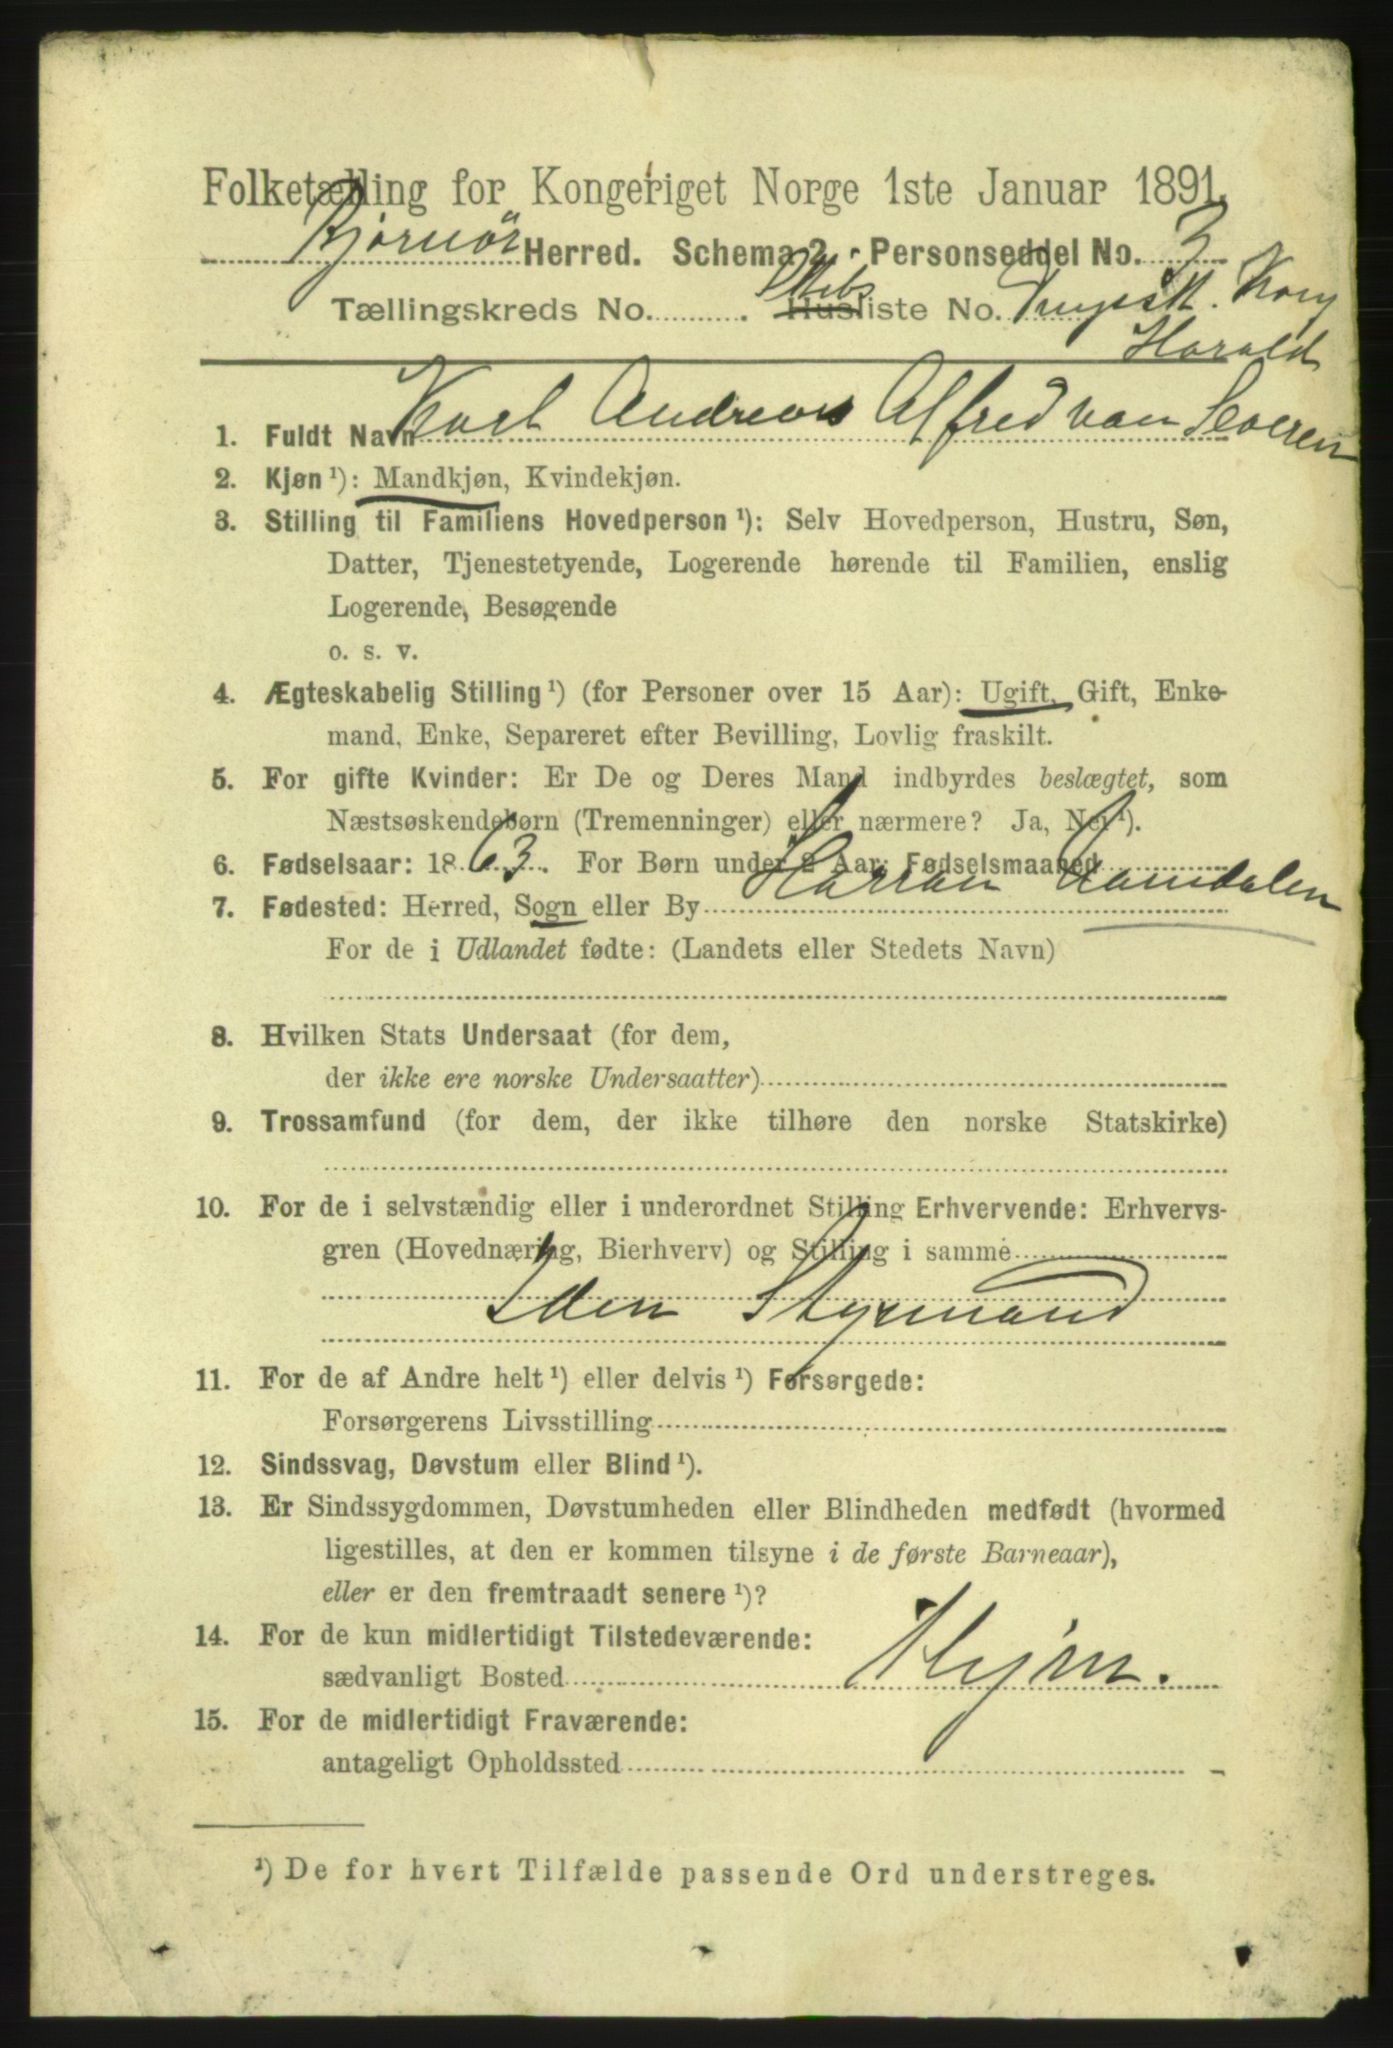 Folketælling for Kongeriget Norge 1ste Januar 1891.
Bjørnör Herred. Schema 2 · Personseddel No. 3
Tællingskreds No. ........ . Skibsliste No. Dmpsk. Kong
Harald
1. Fuldt Navn Karl Andreas Alfred van Severen
2. Kjøn ¹): Mandkjøn, Kvindekjøn.
3. Stilling til Familiens Hovedperson ¹): Selv Hovedperson, Hustru, Søn,
Datter, Tjenestetyende, Logerende hørende til Familien, enslig
Logerende, Besøgende
o. s. v.
4. Ægteskabelig Stilling ¹) (for Personer over 15 Aar): Ugift, Gift, Enke-
mand, Enke, Separeret efter Bevilling, Lovlig fraskilt.
5. For gifte Kvinder: Er De og Deres Mand indbyrdes beslægtet, som
Næstsøskendebørn (Tremenninger) eller nærmere? Ja, Nei ¹).
6. Fødselsaar: 1863. For Børn under 2 Aar: Fødselsmaaned
7. Fødested: Herred, Sogn eller By Harran Namdalen
For de i Udlandet fødte: (Landets eller Stedets Navn)
8. Hvilken Stats Undersaat (for dem,
der ikke ere norske Undersaatter)
9. Trossamfund (for dem, der ikke tilhøre den norske Statskirke)
10. For de i selvstændig eller i underordnet Stilling Erhvervende: Erhvervs-
gren (Hovednæring, Bierhverv) og Stilling i samme
2den Styrmand
11. For de af Andre helt ¹) eller delvis ¹) Forsørgede:
Forsørgerens Livsstilling
12. Sindssvag, Døvstum eller Blind ¹).
13. Er Sindssygdommen, Døvstumheden eller Blindheden medfødt (hvormed
ligestilles, at den er kommen tilsyne i de første Barneaar),
eller er den fremtraadt senere ¹)?
14. For de kun midlertidigt Tilstedeværende:
sædvanligt Bosted Thjm.
15. For de midlertidigt Fraværende:
antageligt Opholdssted
¹) De for hvert Tilfælde passende Ord understreges.